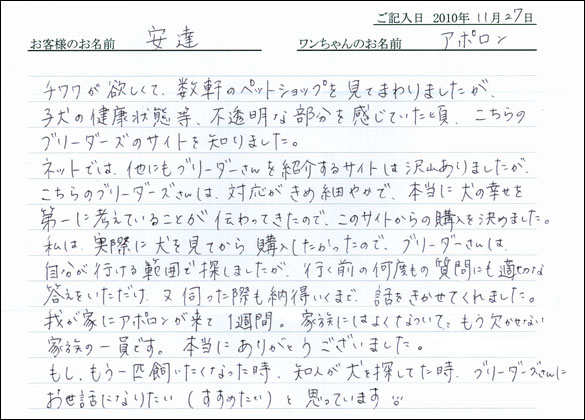 ご記入日 2010年 11月 27日
お客様のお名前 安達 ワンちゃんのお名前 アポロン
チワワが欲しくて、数軒のペットショップを見てまわりましたが、
子犬の健康状態等、不透明な部分を感じていた頃、こちらの
ブリーダーズのサイトを知りました。
ネットでは、他にもブリーダーさんを紹介するサイトは沢山ありましたが、
こちらのブリーダーズさんは、対応がきめ細やかで、本当に犬の幸せを
第一に考えていることが伝わってきたので、このサイトからの購入を決めました。
私は、実際に犬を見てから購入したかったので、ブリーダーさんは、
自分が行ける範囲で探しましたが、行く前の何度もの質問にも適切な
答えをいただけ、又伺った際も納得いくまで、話をきかせてくれました。
我が家にアポロンが来て1週間。家族にはよくなついて、もう欠かせない
家族の一員です。本当にありがとうございました。
もし、もう一匹飼いたくなった時、知人が犬を探してた時、ブリーダーズさんに
お世話になりたい(すすめたい)と思っています